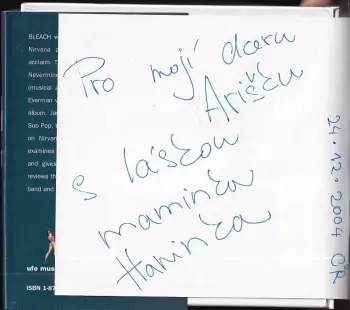 BLEACH
Nirvana
acclaim. T
Nevermin
(musical
Everman
album. Ja
Sub Pop,
on Nirvan
examines
and gives
reviews th
band and
ufo mus
ISBN 1-87
Pro mojí dceru
Arišku
s láskou
maminka
Haninka
24.12.2004 ČR